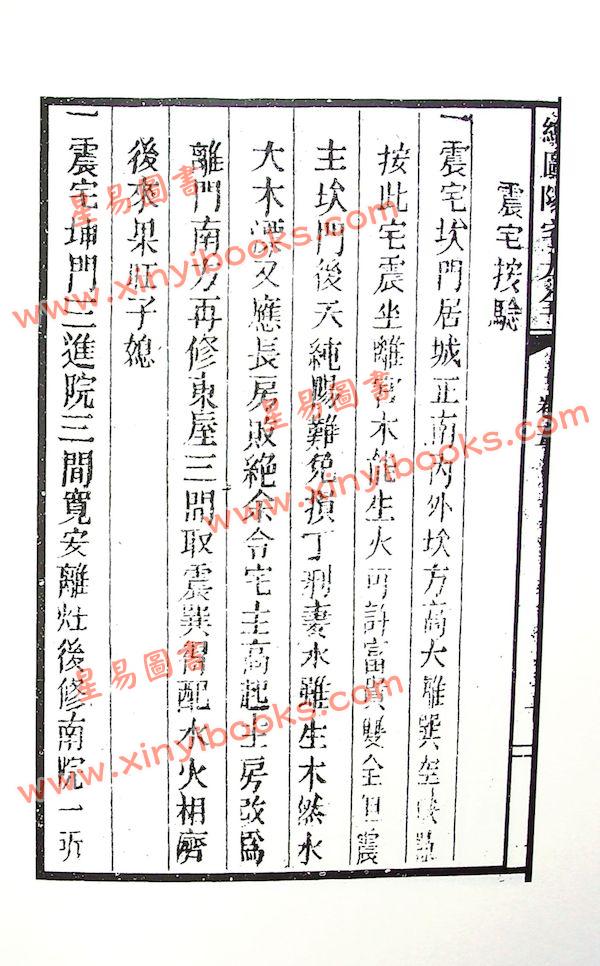 繪圖陽宅大全
震宅按驗
一震宅坎門居城正南內外坎方高大離巽
按此宅震坐離宮木能生火可許富貴雙全但震
主坎門後天純陽難免損丁剋妻水雖生木然水
大木漂又應長房敗絕余令宅主高起主房改為
離門南方再修東屋三間取震巽智配水火相濟
後來果旺子媳
一震宅坤門三進院三間寬安離灶後修南院一所
星易圖書
www.xinyibooks.com
星易圖書
www.xinyibooks.com
星易圖書
www.xinyibooks.com